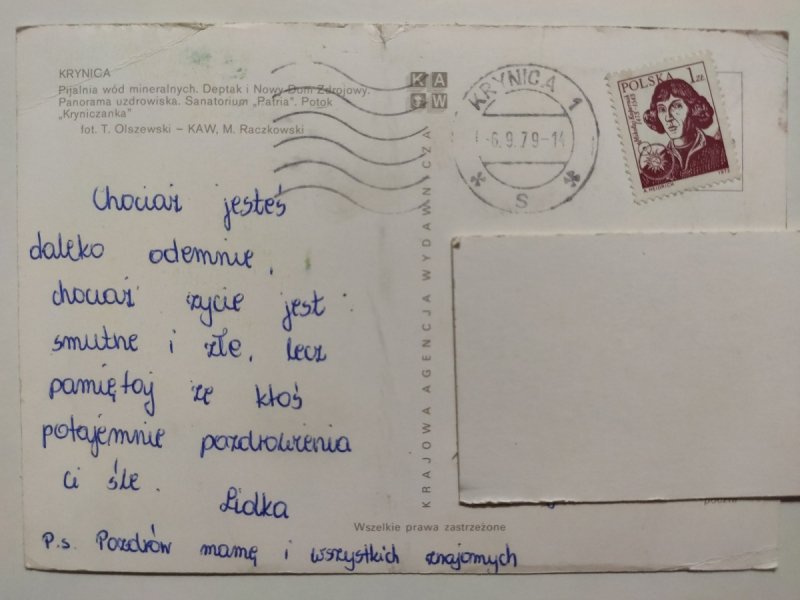 KRYNICA
Pijalnia wód mineralnych. Deptak i Nowy Dom Zdrojowy.
Panorama uzdrowiska. Sanatorium „Patria”. Potok
„Kryniczanka”
fot. T. Olszewski – KAW, M. Raczkowski
KAW
KRAJOWA AGENCJA WYDAWNICZA
KRYNICA 1
-6.9.79-14
S
POLSKA 1 zł
Mikołaj Kopernik
1473-1543
S. HEIDRICH
1972
Chociaż jesteś
daleko odemnie,
chociaż życie jest
smutne i złe, lecz
pamiętaj że ktoś
potajemnie pozdrowienia
ci śle.
Lidka
P.s. Pozdrów mamę i wszystkich znajomych
Wszelkie prawa zastrzeżone